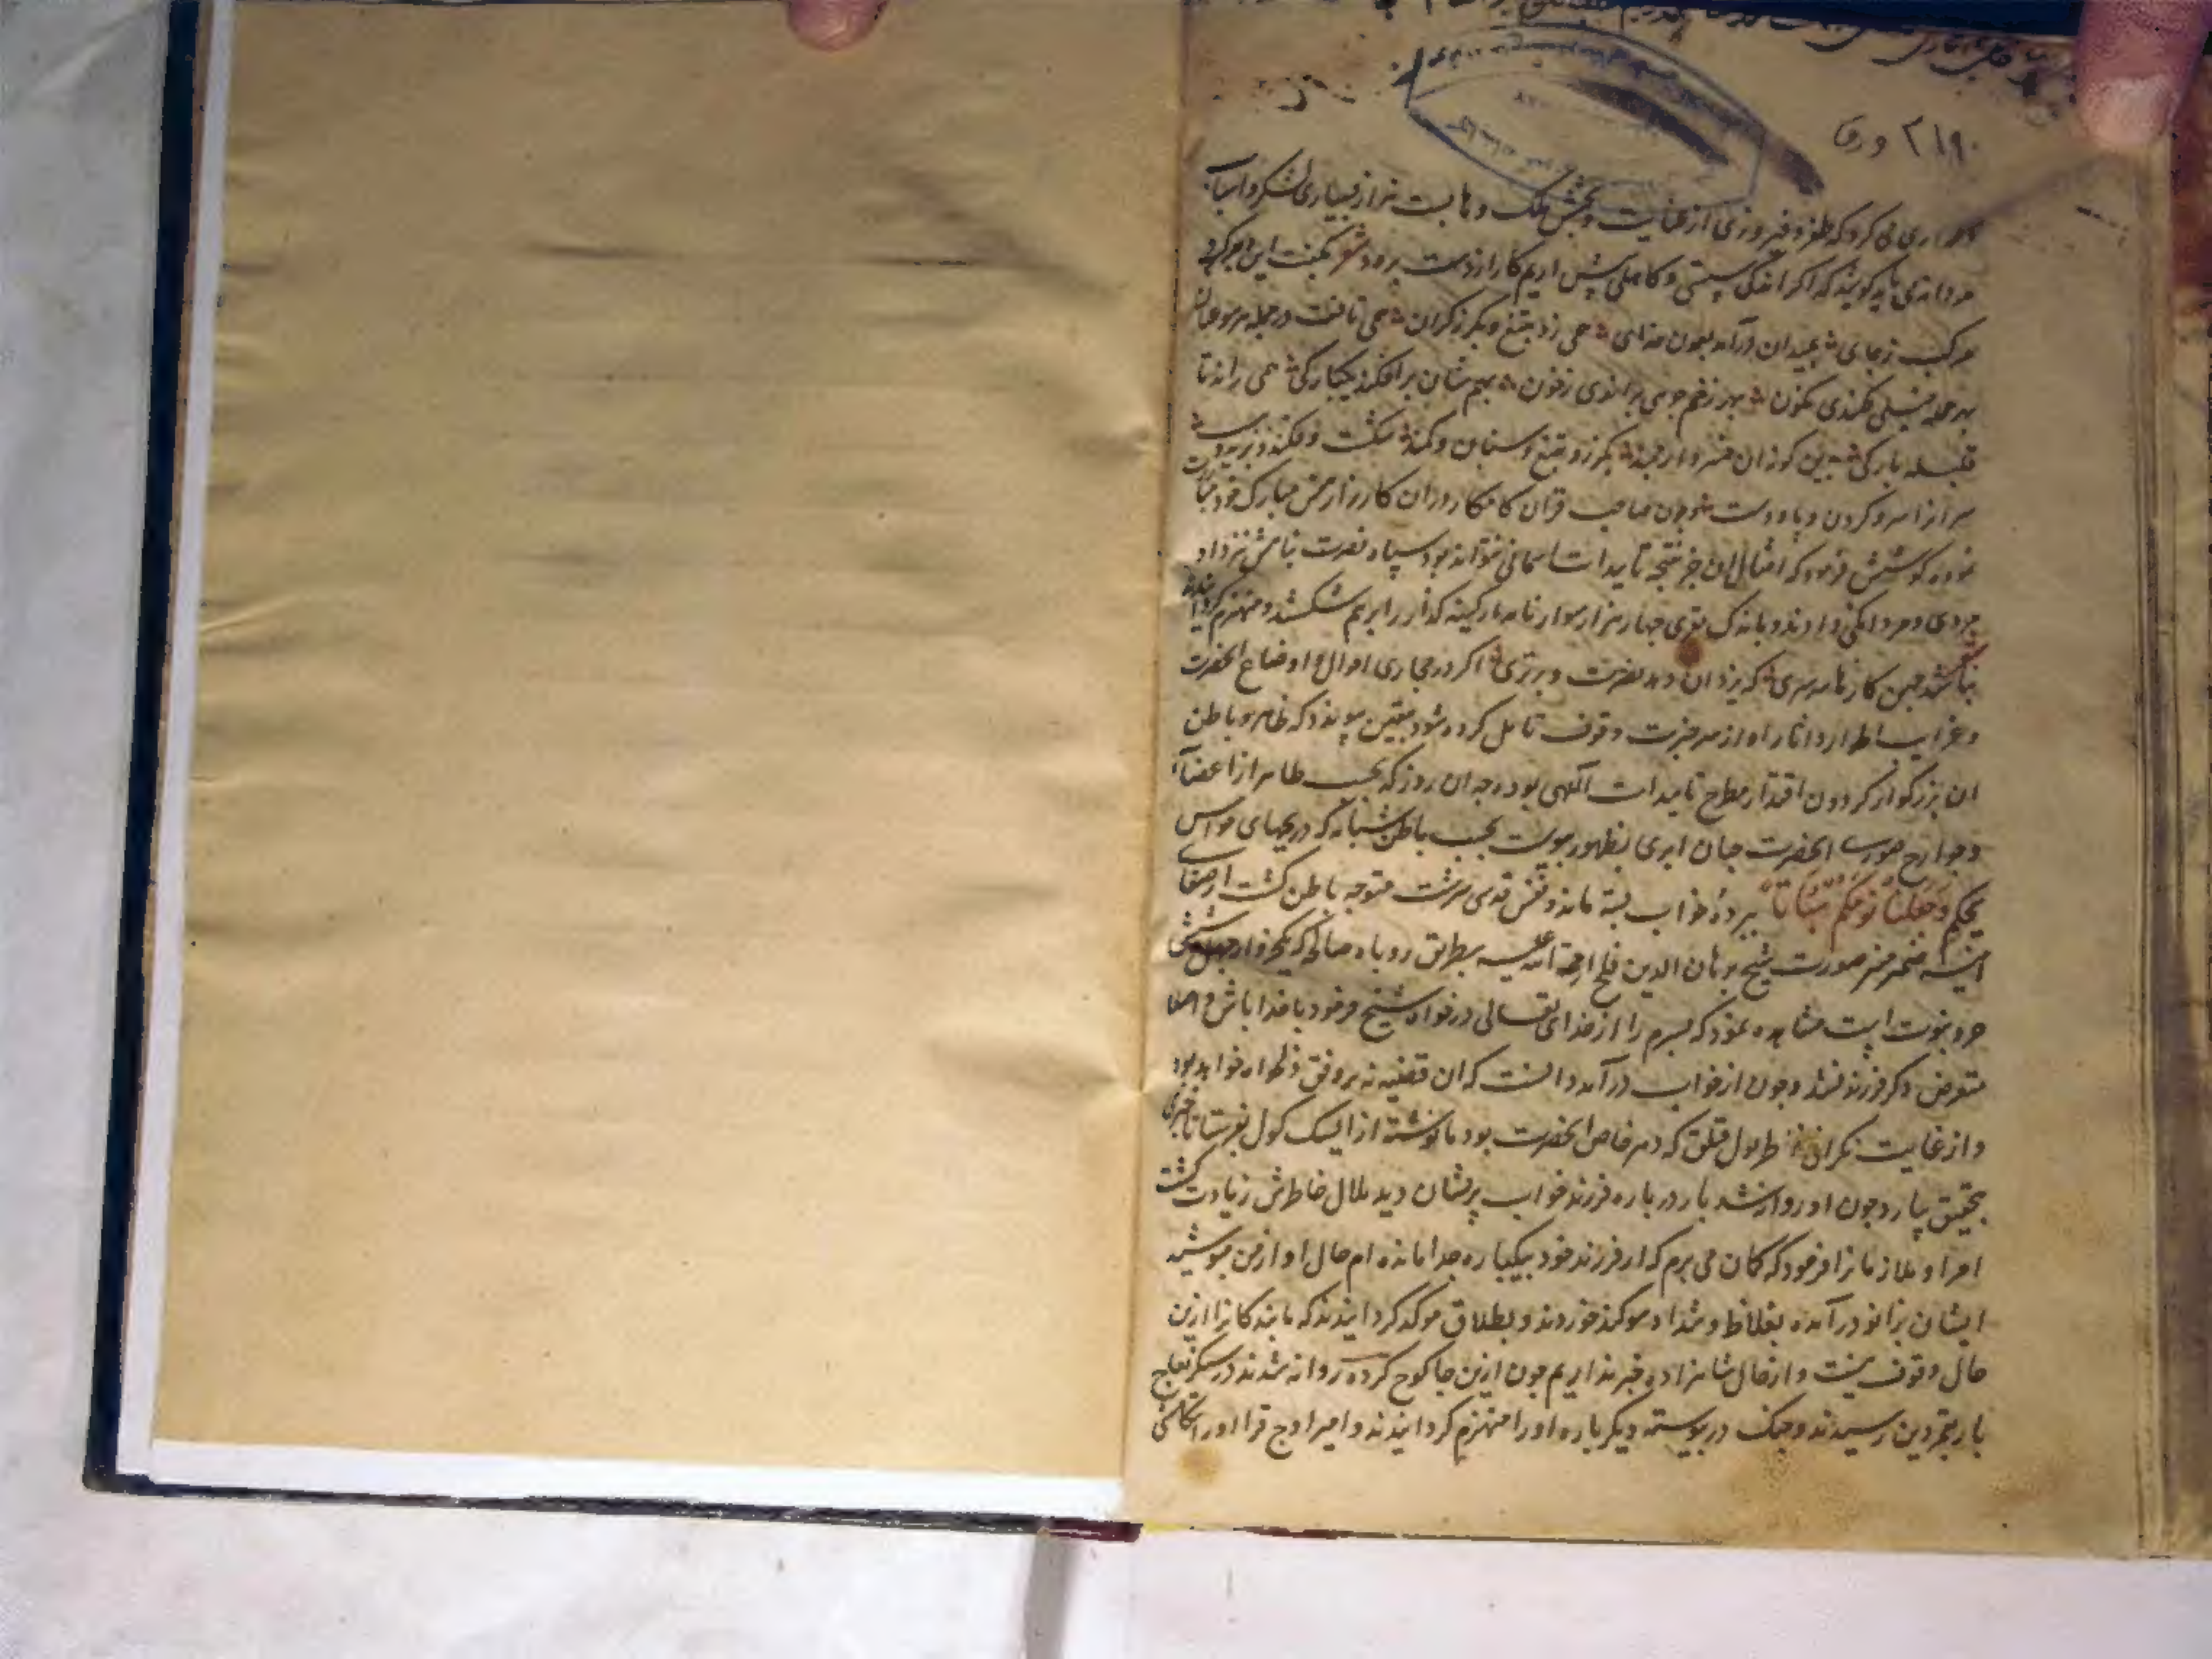 ۲۱۹۰ ورق
می کرد که ظفر و فیروزی از عنایت و بخشش ملک وهابست نه از بسیاری لشکر و اسباب
مردانه‌ای باید کوشید که اگر اندکی سستی و کاهلی پیش اریم کار از دست برود شعر بگفت این و برکرد
مرکب ز جای بمیدان درآمد بعون خدای همی زد بتیغ و بگرز گران همی تافت در حمله هر سو عنان
بهر حمله خیلی فکندی نکون بهر زخم جویی براندی ز خون بهم شان برافکند یکبارگی همی راند تا
قبیله بارگی بدین گونه ان خسرو ارجمند بگرز و تیغ و سنان و کمند شکست و فکند و برید و ببست
سرانرا سر و گردن و پا و دست چون صاحب قران کامکار دران کارزار بنفس مبارک خود مباشرت
نموده کوشش فرمود که امثال ان جز نتیجه تاییدات اسمانی نتواند بود سپاه نصرت پناهش نیز داد
مردی و مردانگی دادند و باندک قوی چهار هزار سوار نامدار کینه گذار را برهم شکستند و منهزم گردانیدند
نباشد چنین کارها سرسری که یزدان دهد نصرت و برتری اگر در مجاری احوال و اوضاع انحضرت
و غرایب اطوار و اثار او از سر خبرت و وقوف تامل کرده شود بیقین پیوندد که ظاهر و باطن
ان بزرگوار گردون اقتدار مطرح تاییدات الهی بوده چه ان روز که بحسب ظاهر از اعضا
و جوارح صوری انحضرت چنان امری بظهور پیوست بحسب باطن شبانه که دریچهای حواس
بحکم وجعلنا نومکم سباتا بپردهٔ خواب بسته ماند و نفس قدسی سرشت متوجه باطن گشت از صفای
اینه ضمیر منیر صورت شیخ برهان الدین قلج رحمة الله علیه بطریق رویاء صالحه که یک جزو از چهل و شش
جزو نبوت است مشاهده نمود که پسرم را از خدای تعالی درخواه شیخ فرمود با خدا باش و اصلا
متعرض ذکر فرزند نشد و چون از خواب درآمد دانست که ان قضیه نه بر وفق دلخواه خواهد بود
و از غایت نکرانی طول قتلق که دهر خاص انحضرت بود بانوشته از ایسک کول بفرستاد تا خبری
بتحقیق بیارد چون او روانه شد بار درباره فرزند خواب پریشان دید ملال خاطرش زیادت گشت
امرا و ملازمانرا فرمود که گمان می برم که از فرزند خود بیکباره جدا مانده ام حال او از من مپوشید
ایشان بزانو درآمده بغلاظ و شداد سوگند خوردند و بطلاق موکد گردانیدند که ما بندگانرا ازین
حال وقوف نیست و از حال شاهزاده خبر نداریم چون ازین جا کوچ کرده روانه شدند در سنکزیغاج
بار بقمردین رسیدند و جنک درپیوسته دیگرباره او را منهزم گردانیدند و امیر اوج قرا او را تکامشی